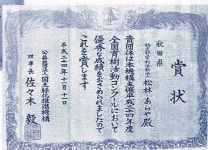 賞状
秋田県
松林 あらや殿
貴団体は本機構主催平成二十四年度
全国育樹活動コンクールにおいて
優秀な成績をおさめられましたので
これを賞します
平成二十四年十月十一日
公益社団法人国土緑化推進機構
理事長 佐々木毅